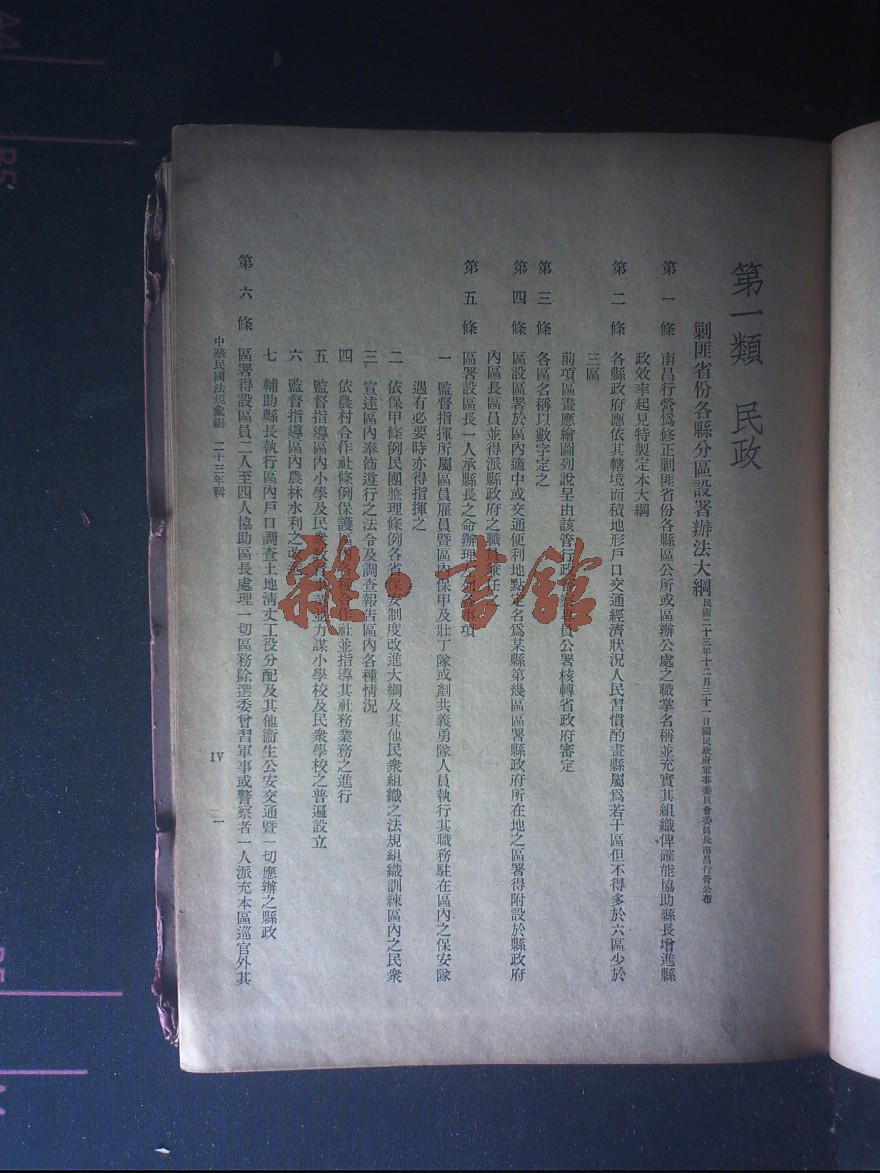 第一類　民政
剿匪省份各縣分區設署辦法大綱 民國二十三年十二月三十一日國民政府軍事委員會委員長南昌行營公布
第一條　南昌行營爲修正剿匪省份各縣區公所或區辦公處之職掌名稱並充實其組織俾確能協助縣長增進縣
政效率起見特製定本大綱
第二條　各縣政府應依其轄境面積地形戶口交通經濟狀況人民習慣酌畫縣屬爲若干區但不得多於六區少於
三區
前項區畫應繪圖列說呈由該管行政督察專員公署核轉省政府審定
第三條　各區名稱以數字定之
第四條　區設區署於區內適中或交通便利地點定名爲某縣第幾區區署縣政府所在地之區署得附設於縣政府
內區長區員並得派縣政府之職員兼任之
第五條　區署設區長一人承縣長之命辦理左列各事項
一　監督指揮所屬區員雇員暨區內保甲及壯丁隊或剷共義勇隊人員執行其職務駐在區內之保安隊
遇有必要時亦得指揮之
二　依保甲條例民團整理條例各省保安制度改進大綱及其他民衆組織之法規組織訓練區內之民衆
三　宣達區內奉飭遵行之法令及調查報告區內各種情況
四　依農村合作社條例保護區內各種合作社並指導其社務業務之進行
五　監督指導區內小學及民衆教育事業並力謀小學校及民衆學校之普遍設立
六　監督指導區內農林水利之改
七　輔助縣長執行區內戶口調查土地清丈工役分配及其他衞生公安交通暨一切應辦之縣政
第六條　區署得設區員二人至四人協助區長處理一切區務除選委曾習軍事或警察者一人派充本區巡官外其
中華民國法規彙編　二十三年輯　IV　二一
雜·書館